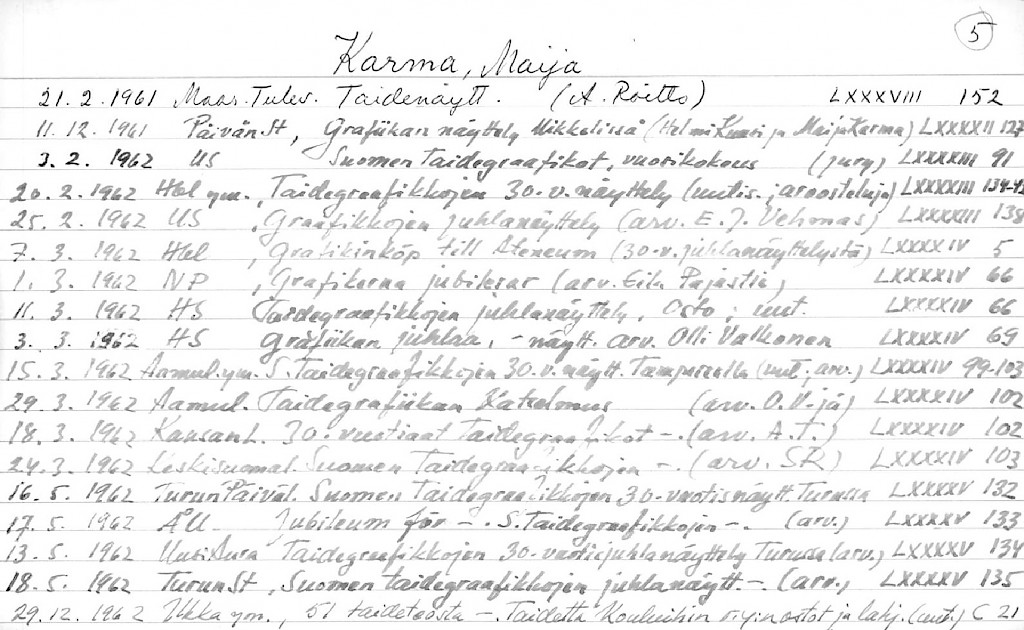 5
Karma, Maija
21.2.1961 Maas.Tulev. Taidenäytt. (A. Röitto) LXXXVIII 152
11.12.1961 Päivän.St, Grafiikan näyttely Mikkelissä (Helmi Kuusi ja Maija Karma) LXXXXII 127
3.2.1962 US Suomen Taidegraafikot, vuosikokous (jury) LXXXXIII 91
20.2.1962 Hbl ym., Taidegraafikkojen 30-v.näyttely (uutis. ja arvosteluja) LXXXXIII 134-42
25.2.1962 US, Graafikkojen juhlanäyttely (arv. E.J. Vehmas) LXXXXIII 138
7.3.1962 Hbl, Grafikinköp till Ateneum (30-v.juhlanäyttelystä) LXXXXIV 5
1.3.1962 NP, Grafikerna jubilerar (arv. Eila Pajastie) LXXXXIV 66
11.3.1962 HS Taidegraafikkojen juhlanäyttely, osto; uut. LXXXXIV 66
3.3.1962 HS Grafiikan juhlaa, -näytt. arv. Olli Valkonen LXXXXIV 69
15.3.1962 Aamul.ym. S.Taidegraafikkojen 30.v.näytt. Tampereella (uut., arv.) LXXXXIV 99-103
29.3.1962 Aamul. Taidegrafiikan Katselmus (arv. O.V-jä) LXXXXIV 102
18.3.1962 Kansan L. 30-vuotiaat Taidegraafikot -. (arv. A.T.) LXXXXIV 102
24.3.1962 Keskisuomal. Suomen Taidegraafikkojen -. (arv. SR) LXXXXIV 103
16.5.1962 Turun Päiväl. Suomen Taidegraafikkojen 30-vuotisnäytt. Turussa LXXXXV 132
17.5.1962 ÅU Jubileum för -. S.Taidegraafikkojen -. (arv.) LXXXXV 133
13.5.1962 Uusi Aura Taidegraafikkojen 30-vuotisjuhlanäyttely Turussa (arv.) LXXXXV 134
18.5.1962 Turun St, Suomen taidegraafikkojen juhlanäytt -. (arv.) LXXXXV 135
29.12.1962 Ilkka ym., 51 taideteosta - Taidetta Kouluihin r.y:n ostot ja lahj. (uut.) C 21